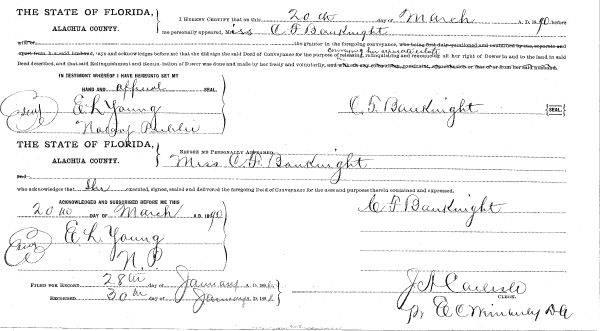 THE STATE OF FLORIDA,
ALACHUA COUNTY.
I HEREBY CERTIFY that on this 20th day of March A. D. 1890 before
me personally appeared, Miss C F Bauknight
the grantor in the foregoing conveyance, who being first duly questioned and examined by me, separate and
apart from her said husband, says and acknowledges before me that she did sign the said Deed of Conveyance for the purpose of releasing, relinquishing and renouncing all her right of Dower in and to the land in said
Deed described, and that said Relinquishment and Renunciation of Dower was done and made by her freely and voluntarily, and without any compulsion, constraint, apprehension or fear of or from her said husband.
IN TESTIMONY WHEREOF I HAVE HEREUNTO SET MY
HAND AND official SEAL.
Seal E. L. Young
Notary Public
C. F. Bauknight (SEAL)
THE STATE OF FLORIDA,
ALACHUA COUNTY.
BEFORE ME PERSONALLY APPEARED
Miss C. F. Bauknight
who acknowledges that She executed, signed, sealed and delivered the foregoing Deed of Conveyance for the uses and purpose therein contained and expressed.
ACKNOWLEDGED AND SUBSCRIBED BEFORE ME THIS
20th DAY OF March A.D. 1890
Seal E. L. Young
N. P.
C F Bauknight
FILED FOR RECORD 28th day of January A. D. 189
RECORDED 30th day of January A. D. 189
J A Carlisle
CLERK.
pr E C Wimberly DC